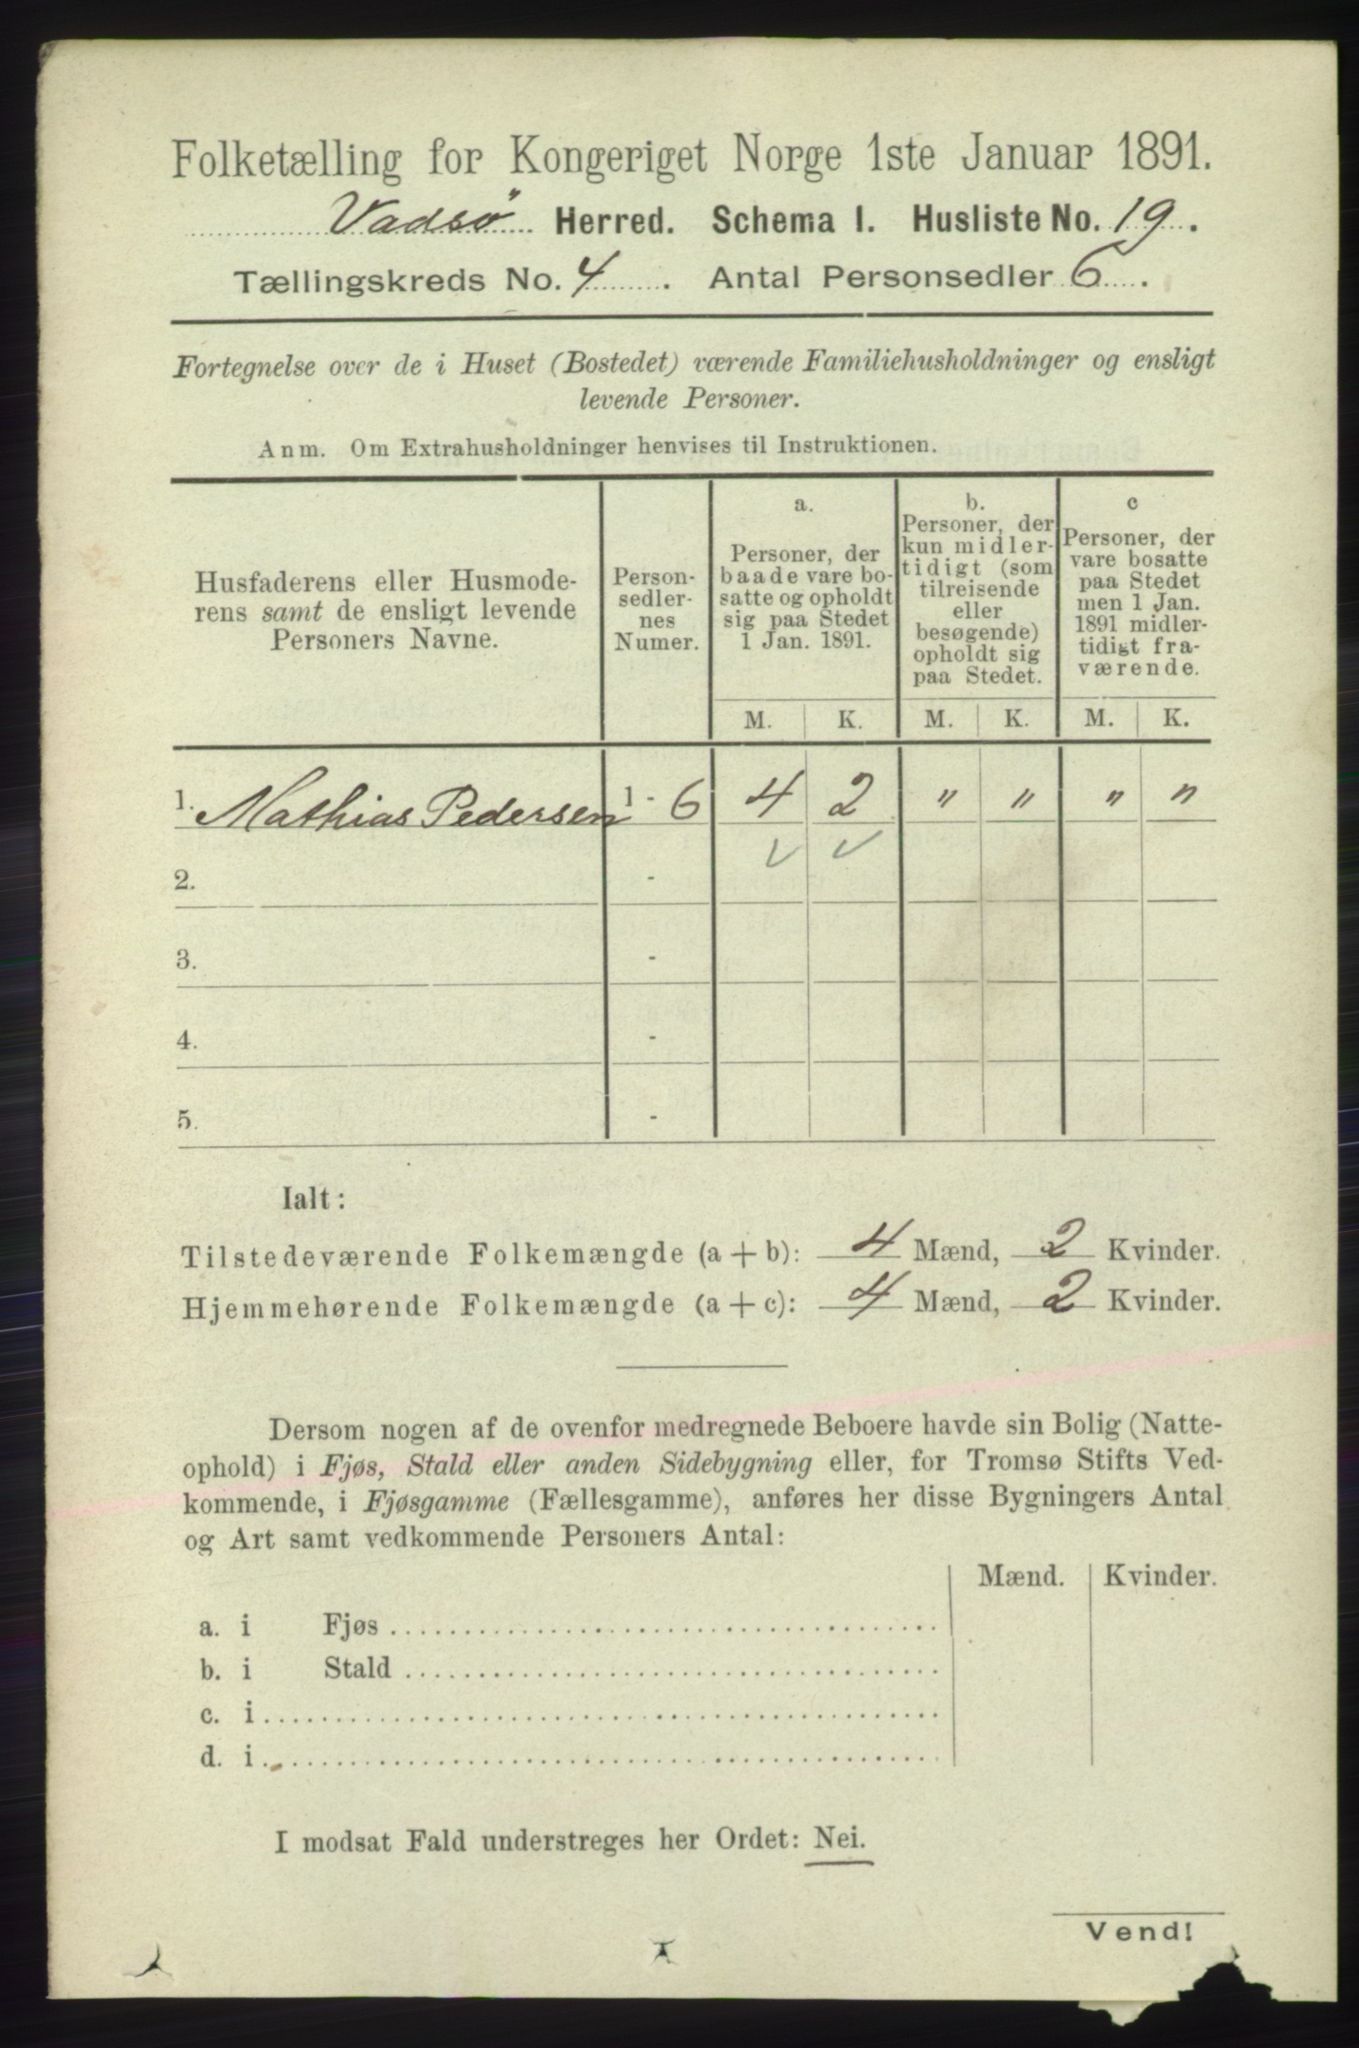 Folketælling for Kongeriget Norge 1ste Januar 1891.
Vadsø Herred. Schema I. Husliste No. 19.
Tællingskreds No. 4. Antal Personsedler 6.
Fortegnelse over de i Huset (Bostedet) værende Familiehusholdninger og ensligt
levende Personer.
Anm. Om Extrahusholdninger henvises til Instruktionen.
Husfaderens eller Husmode-
rens samt de ensligt levende
Personers Navne.
Person-
sedler-
nes
Numer.
a.
Personer, der
baade vare bo-
satte og opholdt
sig paa Stedet
1 Jan. 1891.
b.
Personer, der
kun midler-
tidigt (som
tilreisende
eller
besøgende)
opholdt sig
paa Stedet.
c
Personer, der
vare bosatte
paa Stedet
men 1 Jan.
1891 midler-
tidigt fra-
værende.
M. K. M. K. M. K.
1. Mathias Pedersen 1 - 6 4 2 " " " "
2. - ✓ ✓
3. -
4. -
5. -
Ialt:
Tilstedeværende Folkemængde (a + b): 4 Mænd, 2 Kvinder.
Hjemmehørende Folkemængde (a + c): 4 Mænd, 2 Kvinder.
Dersom nogen af de ovenfor medregnede Beboere havde sin Bolig (Natte-
ophold) i Fjøs, Stald eller anden Sidebygning eller, for Tromsø Stifts Ved-
kommende, i Fjøsgamme (Fællesgamme), anføres her disse Bygningers Antal
og Art samt vedkommende Personers Antal:
Mænd. Kvinder.
a. i Fjøs
b. i Stald
c. i
d. i
I modsat Fald understreges her Ordet: Nei.
Vend!